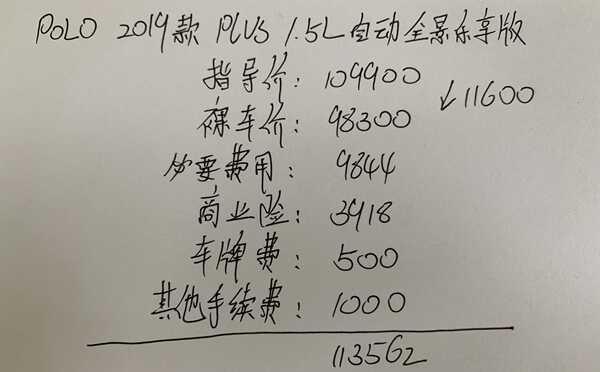 POLO 2019款 PLUS 1.5L自动全景乐享版
指导价: 109900
↙11600
裸车价: 98300
必要费用: 9844
商业险: 3918
车牌费: 500
其他手续费: 1000
113562